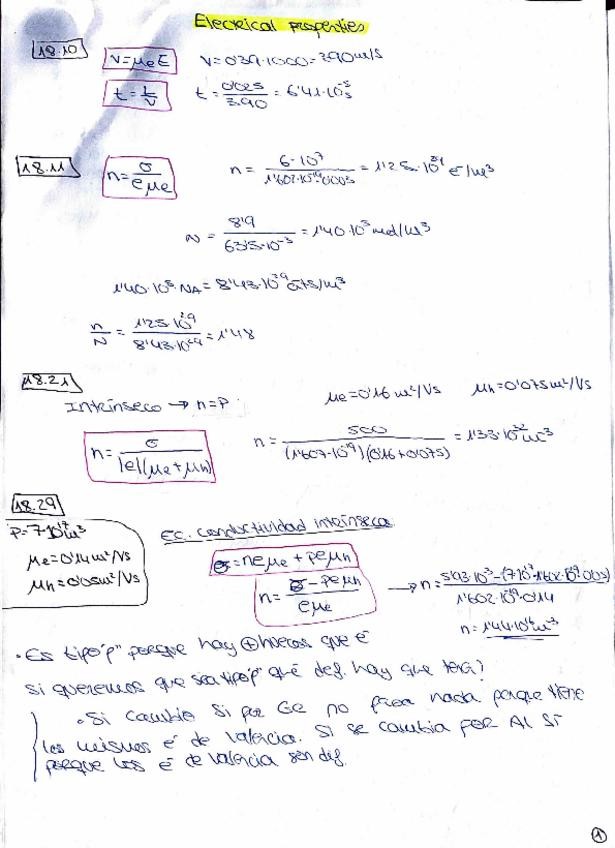 Electrical properties
18.10 V=μeE V=0'39·1000=390m/s
t=L/V t=0'025/390=6'41·10⁻⁵s
18.11 n=σ/eμe n=6·10⁷/1'602·10⁻¹⁹·0'003=1'25·10²⁹ē/m³
N=8'9/63'5·10⁻³=1'40·10⁵mol/m³
1'40·10⁵·NA=8'43·10²⁹ats/m³
n/N=1'25·10²⁹/8'43·10²⁹=1'48
18.21
Intrínseco → n=P μe=0'16m²/Vs μh=0'075m²/Vs
n=σ/|e|(μe+μh) n=500/(1'602·10⁻¹⁹)(0'16+0'075)=1'33·10²²m⁻³
18.29
P=7·10¹⁷m³
μe=0'14m²/Vs
μh=0'05m²/Vs
Ec. conductividad intrínseca
σ=neμe+peμh
n=σ-peμh/eμe → n=5'93·10⁻³-(7·10¹⁷·1'602·10⁻¹⁹·0'05)/1'602·10⁻¹⁹·0'14
n=1'44·10¹⁶m⁻³
·Es tipo "p" porque hay ⊕ huecos que ē
Si queremos que sea tipo "p" qué def. hay que tener?
·Si cambio Si por Ge no pasa nada porque tiene
los mismos ē de valencia. Si se cambia por Al Sí
porque los ē de valencia son dif.
1